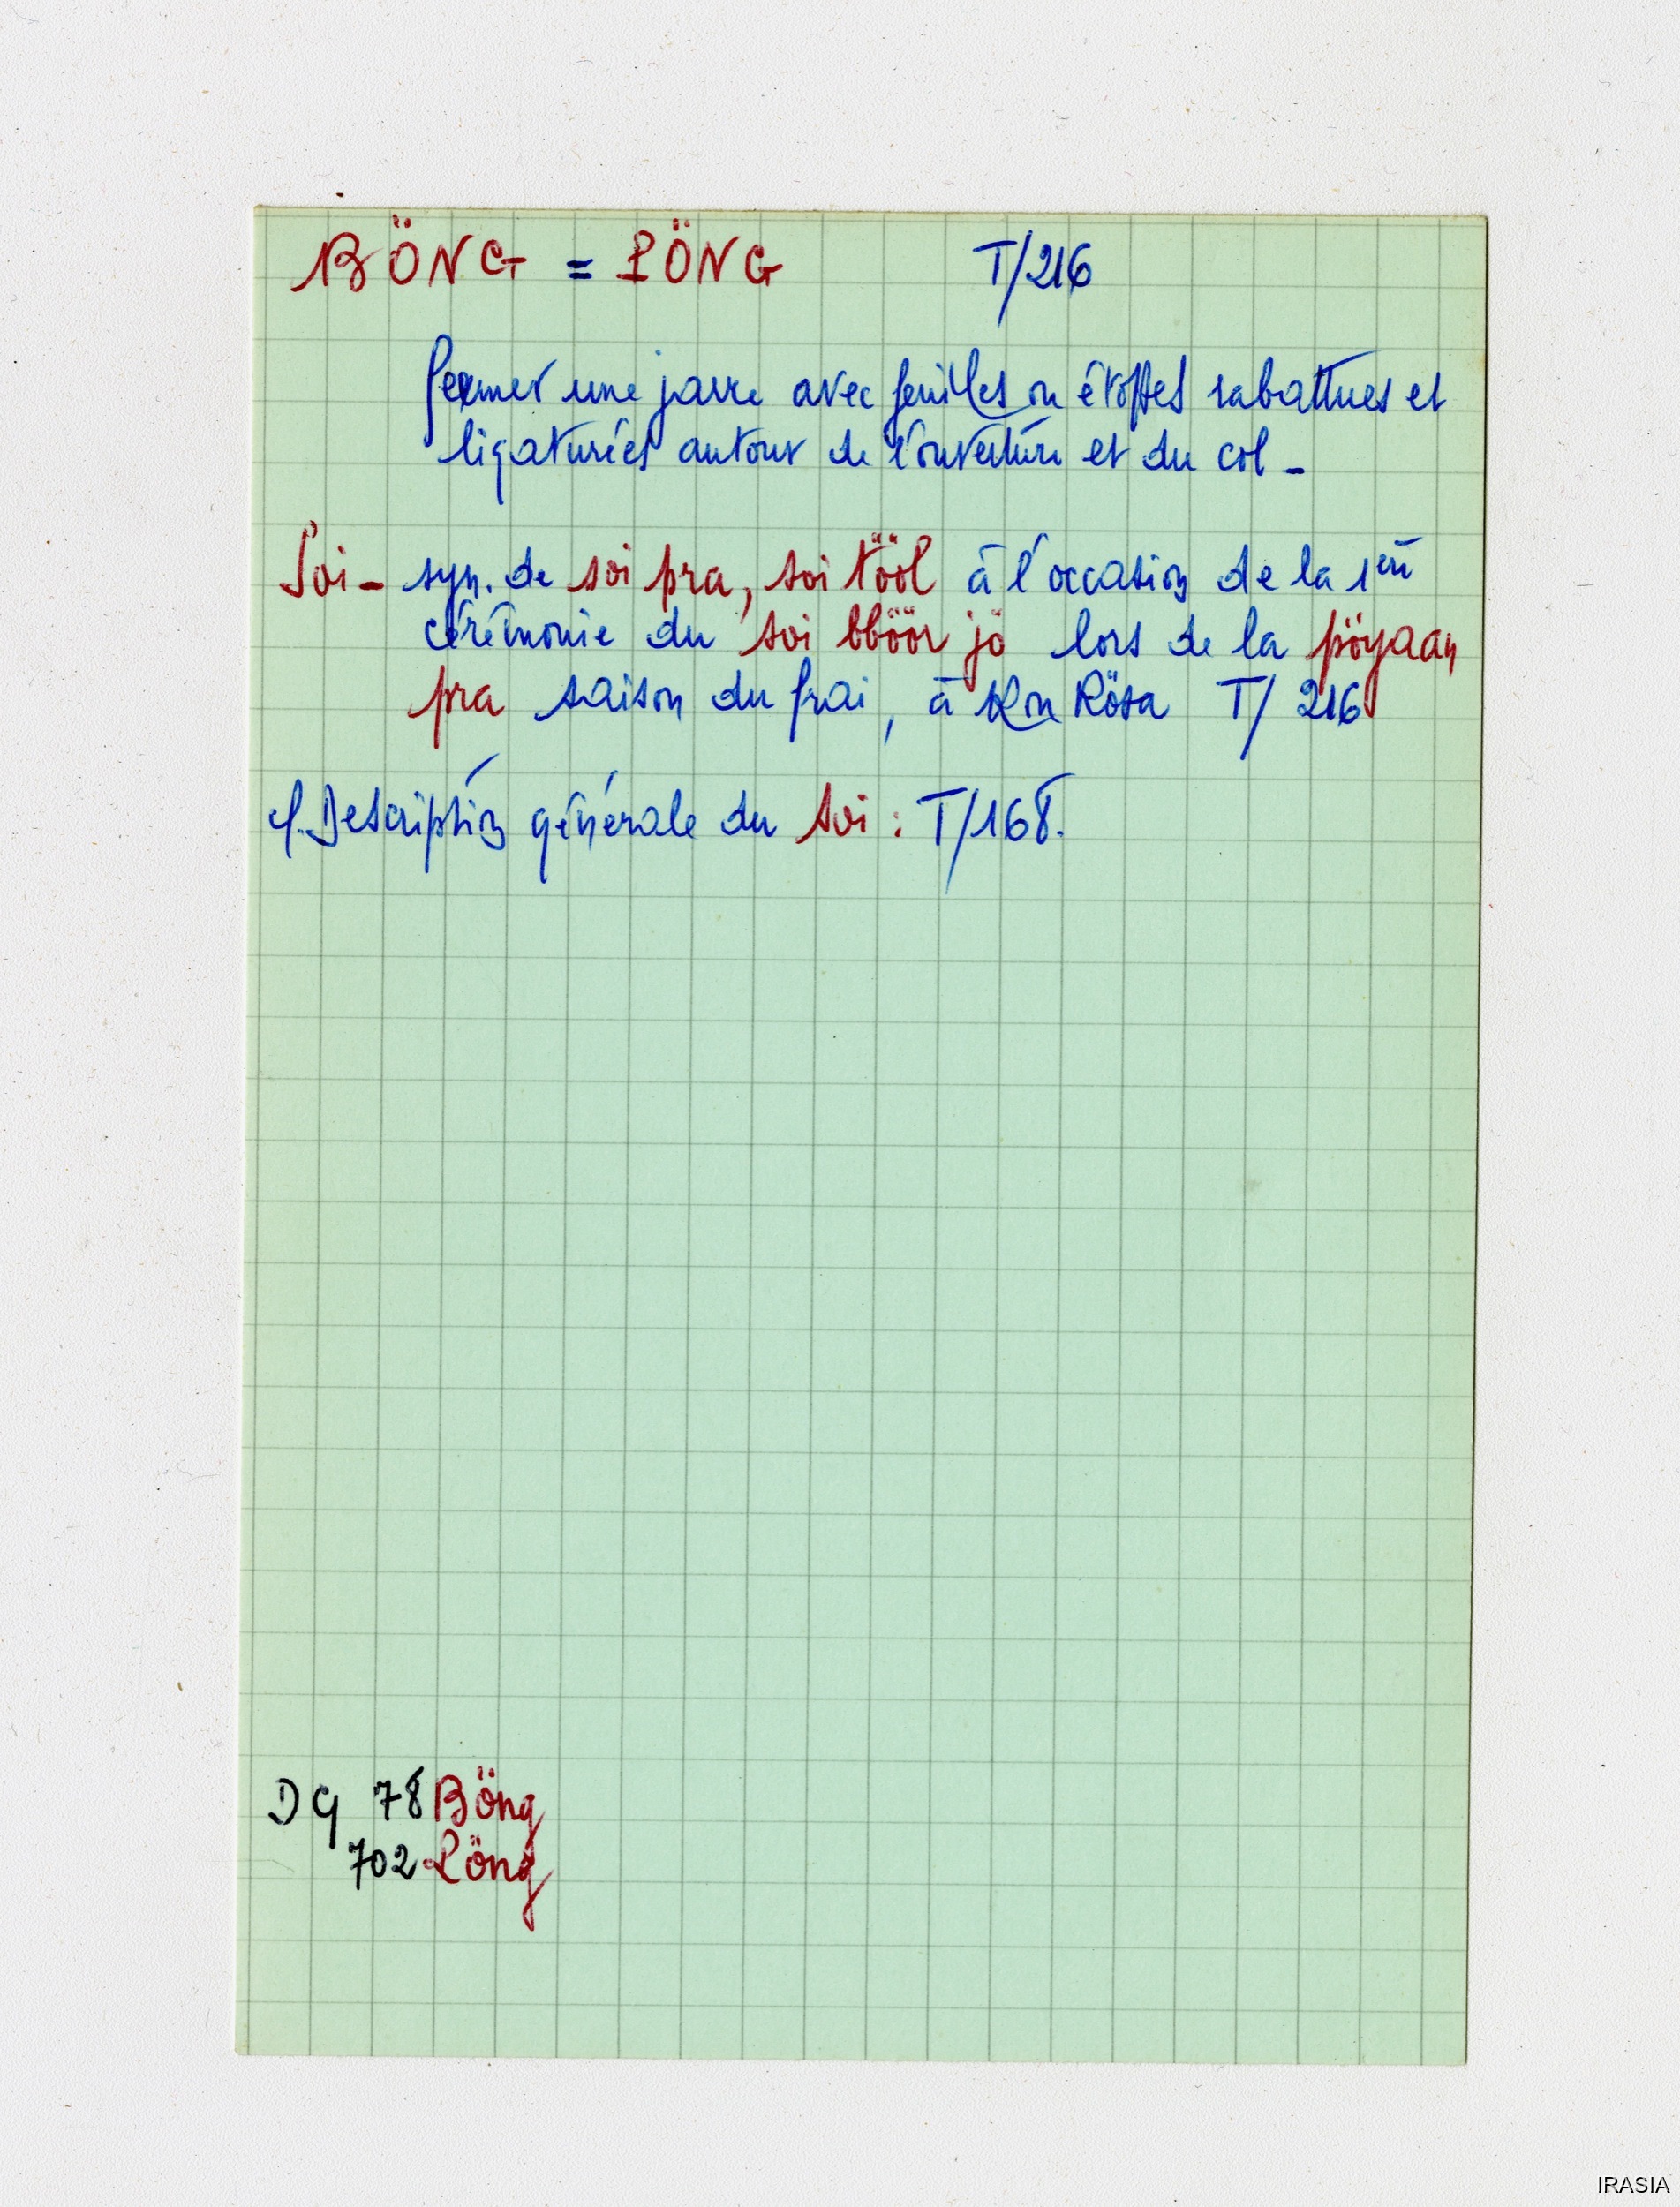 BÖNG = PÖNG T/216
fermer une jarre avec feuilles ou étoffes rabattues et
ligaturées autour de l'ouverture et du col -
Soi - syn. de soi pra, soi tööl à l'occasion de la 1ère
cérémonie du soi bböör jö lors de la pöyaan
pra saison du frai, à Kon Rösa T/216
cf. Description générale du soi : T/168.
DG 78 Böng
702 Pöng
IRASIA